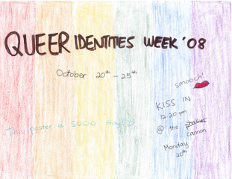 QUEER IDENTITIES WEEK '08
October 20th - 25th
smooch!
KISS IN
12:20 pm
@ the cannon
This poster is SOOO
Monday
20th